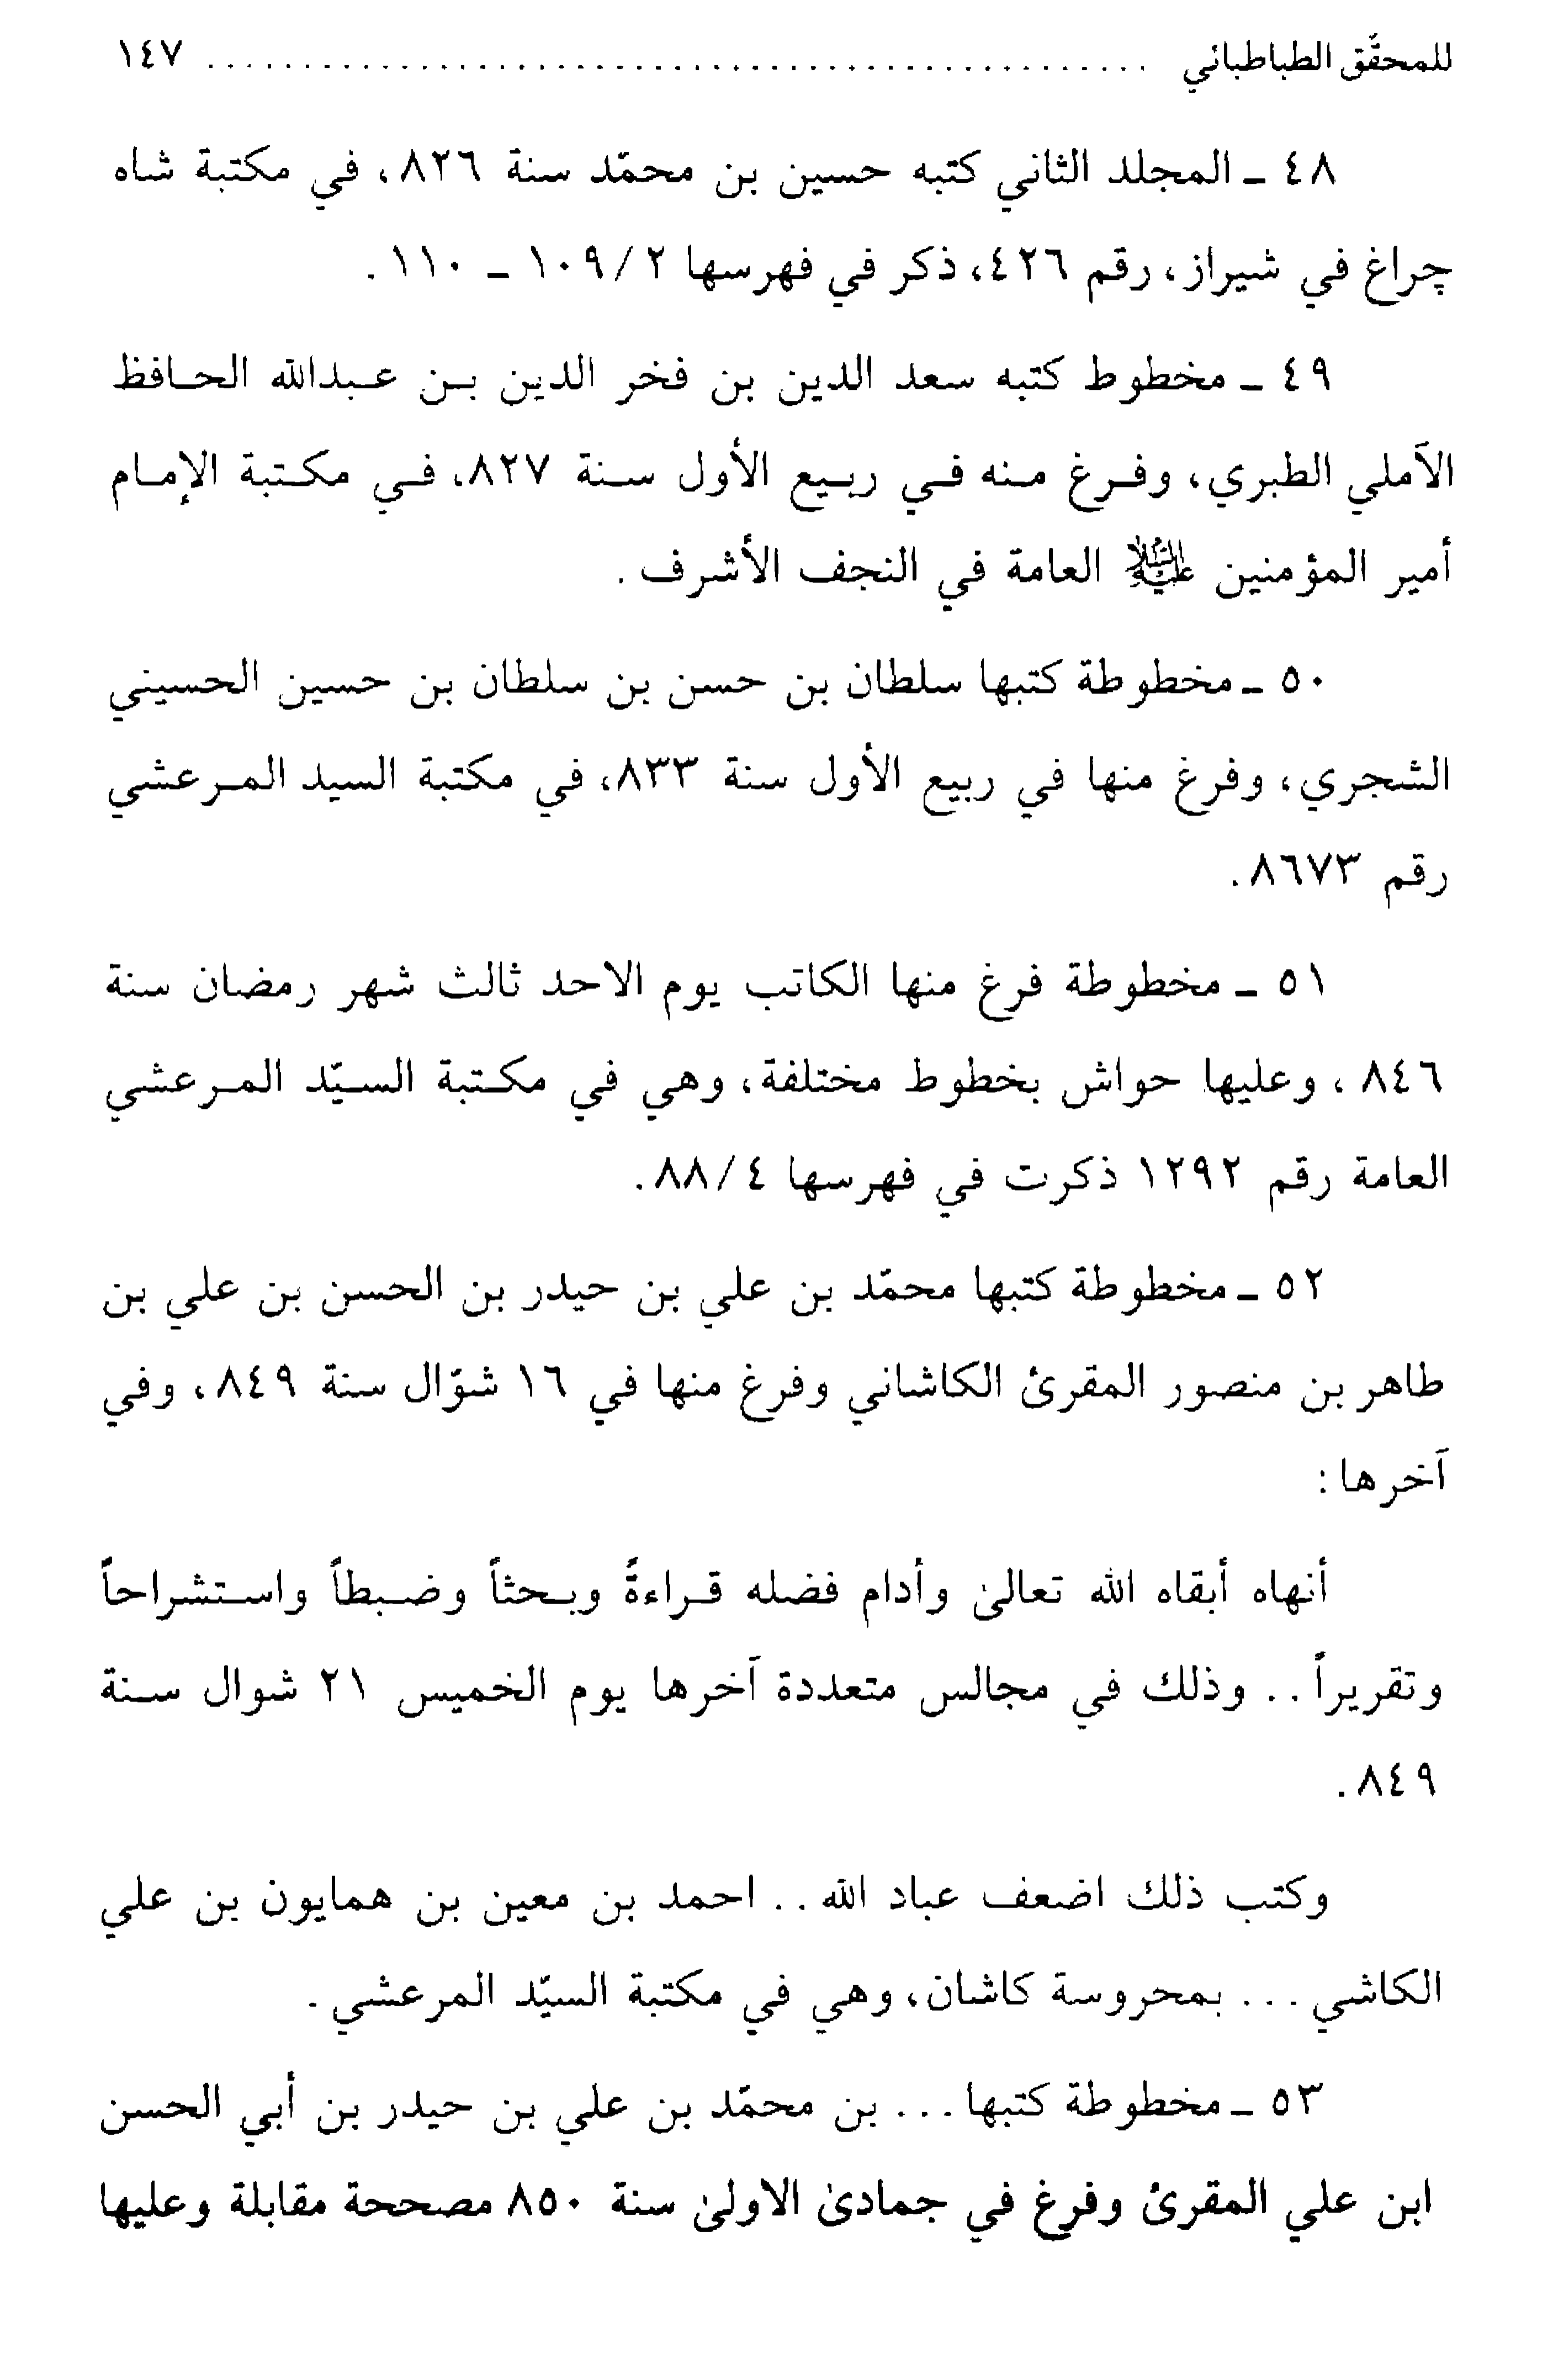 للمحقّق الطباطبائي ................................................ ١٤٧
٤٨ ـ المجلد الثاني كتبه حسين بن محمّد سنة ٨٢٦، في مكتبة شاه
چراغ في شيراز، رقم ٤٢٦، ذكر في فهرسها ٢/ ١٠٩ ـ ١١٠.
٤٩ ـ مخطوط كتبه سعد الدين بن فخر الدين بن عبدالله الحافظ
الآملي الطبري، وفرغ منه في ربيع الأول سنة ٨٢٧، في مكتبة الإمام
أمير المؤمنين عليه السلام العامة في النجف الأشرف.
٥٠ ـ مخطوطة كتبها سلطان بن حسن بن سلطان بن حسين الحسيني
الشجري، وفرغ منها في ربيع الأول سنة ٨٣٣، في مكتبة السيد المرعشي
رقم ٨٦٧٣.
٥١ ـ مخطوطة فرغ منها الكاتب يوم الاحد ثالث شهر رمضان سنة
٨٤٦، وعليها حواش بخطوط مختلفة، وهي في مكتبة السيّد المرعشي
العامة رقم ١٢٩٢ ذكرت في فهرسها ٤/ ٨٨.
٥٢ ـ مخطوطة كتبها محمّد بن علي بن حيدر بن الحسن بن علي بن
طاهر بن منصور المقرئ الكاشاني وفرغ منها في ١٦ شوّال سنة ٨٤٩، وفي
آخرها:
أنهاه أبقاه الله تعالىٰ وأدام فضله قراءةً وبحثاً وضبطاً واستشراحاً
وتقريراً .. وذلك في مجالس متعددة آخرها يوم الخميس ٢١ شوال سنة
٨٤٩.
وكتب ذلك اضعف عباد الله .. احمد بن معين بن همايون بن علي
الكاشي ... بمحروسة كاشان، وهي في مكتبة السيّد المرعشي.
٥٣ ـ مخطوطة كتبها ... بن محمّد بن علي بن حيدر بن أبي الحسن
ابن علي المقرئ وفرغ في جمادىٰ الاولىٰ سنة ٨٥٠ مصححة مقابلة وعليها